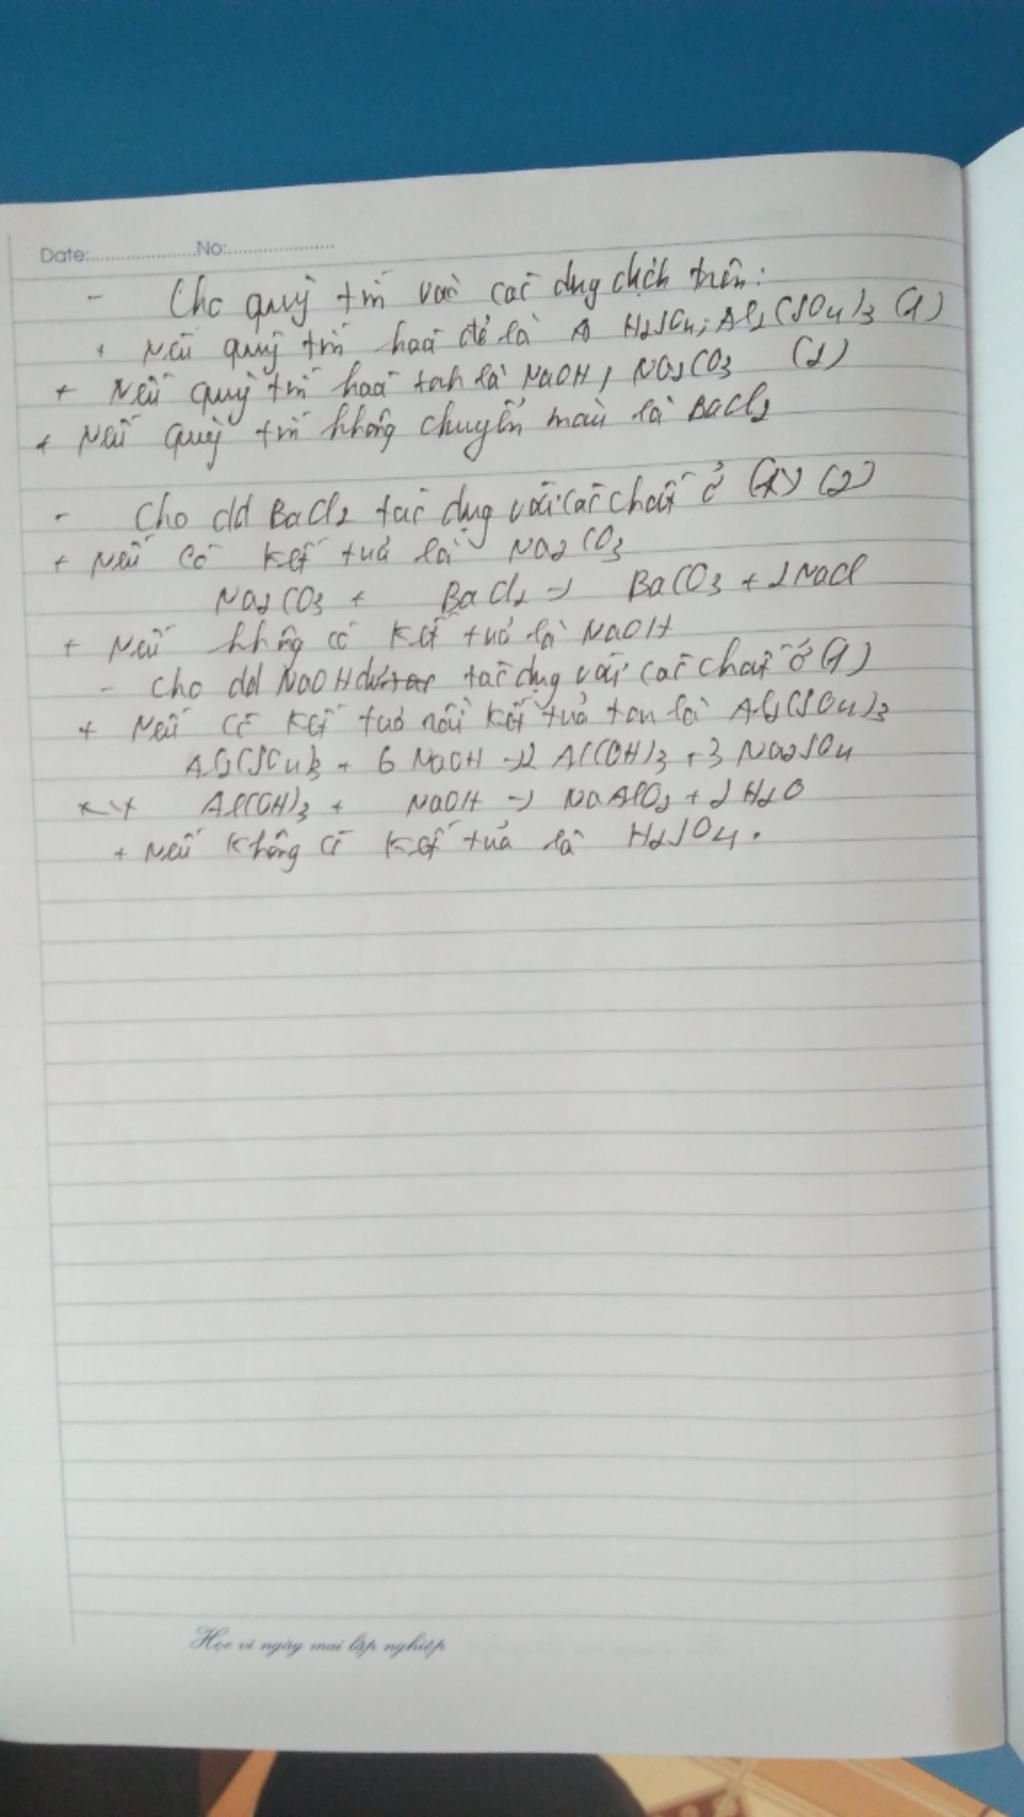 Date:....................No:....................
- Cho quỳ tím vào các dung dịch trên:
+ Nếu quỳ tím hoá đỏ là H2SO4, Al2(SO4)3 (1)
+ Nếu quỳ tím hoá xanh là NaOH, Na2CO3 (2)
+ Nếu quỳ tím không chuyển màu là BaCl2
- Cho dd BaCl2 tác dụng với các chất ở (2)
+ Nếu có kết tủa là Na2CO3
Na2CO3 + BaCl2 → BaCO3 + 2NaCl
+ Nếu không có kết tủa là NaOH
- Cho dd NaOH dư tác dụng với các chất ở (1)
+ Nếu có kết tủa rồi kết tủa tan là Al2(SO4)3
Al2(SO4)3 + 6 NaOH → 2 Al(OH)3 + 3 Na2SO4
Al(OH)3 + NaOH → NaAlO2 + 2 H2O
+ Nếu không có kết tủa là H2SO4.
Học vì ngày mai lập nghiệp